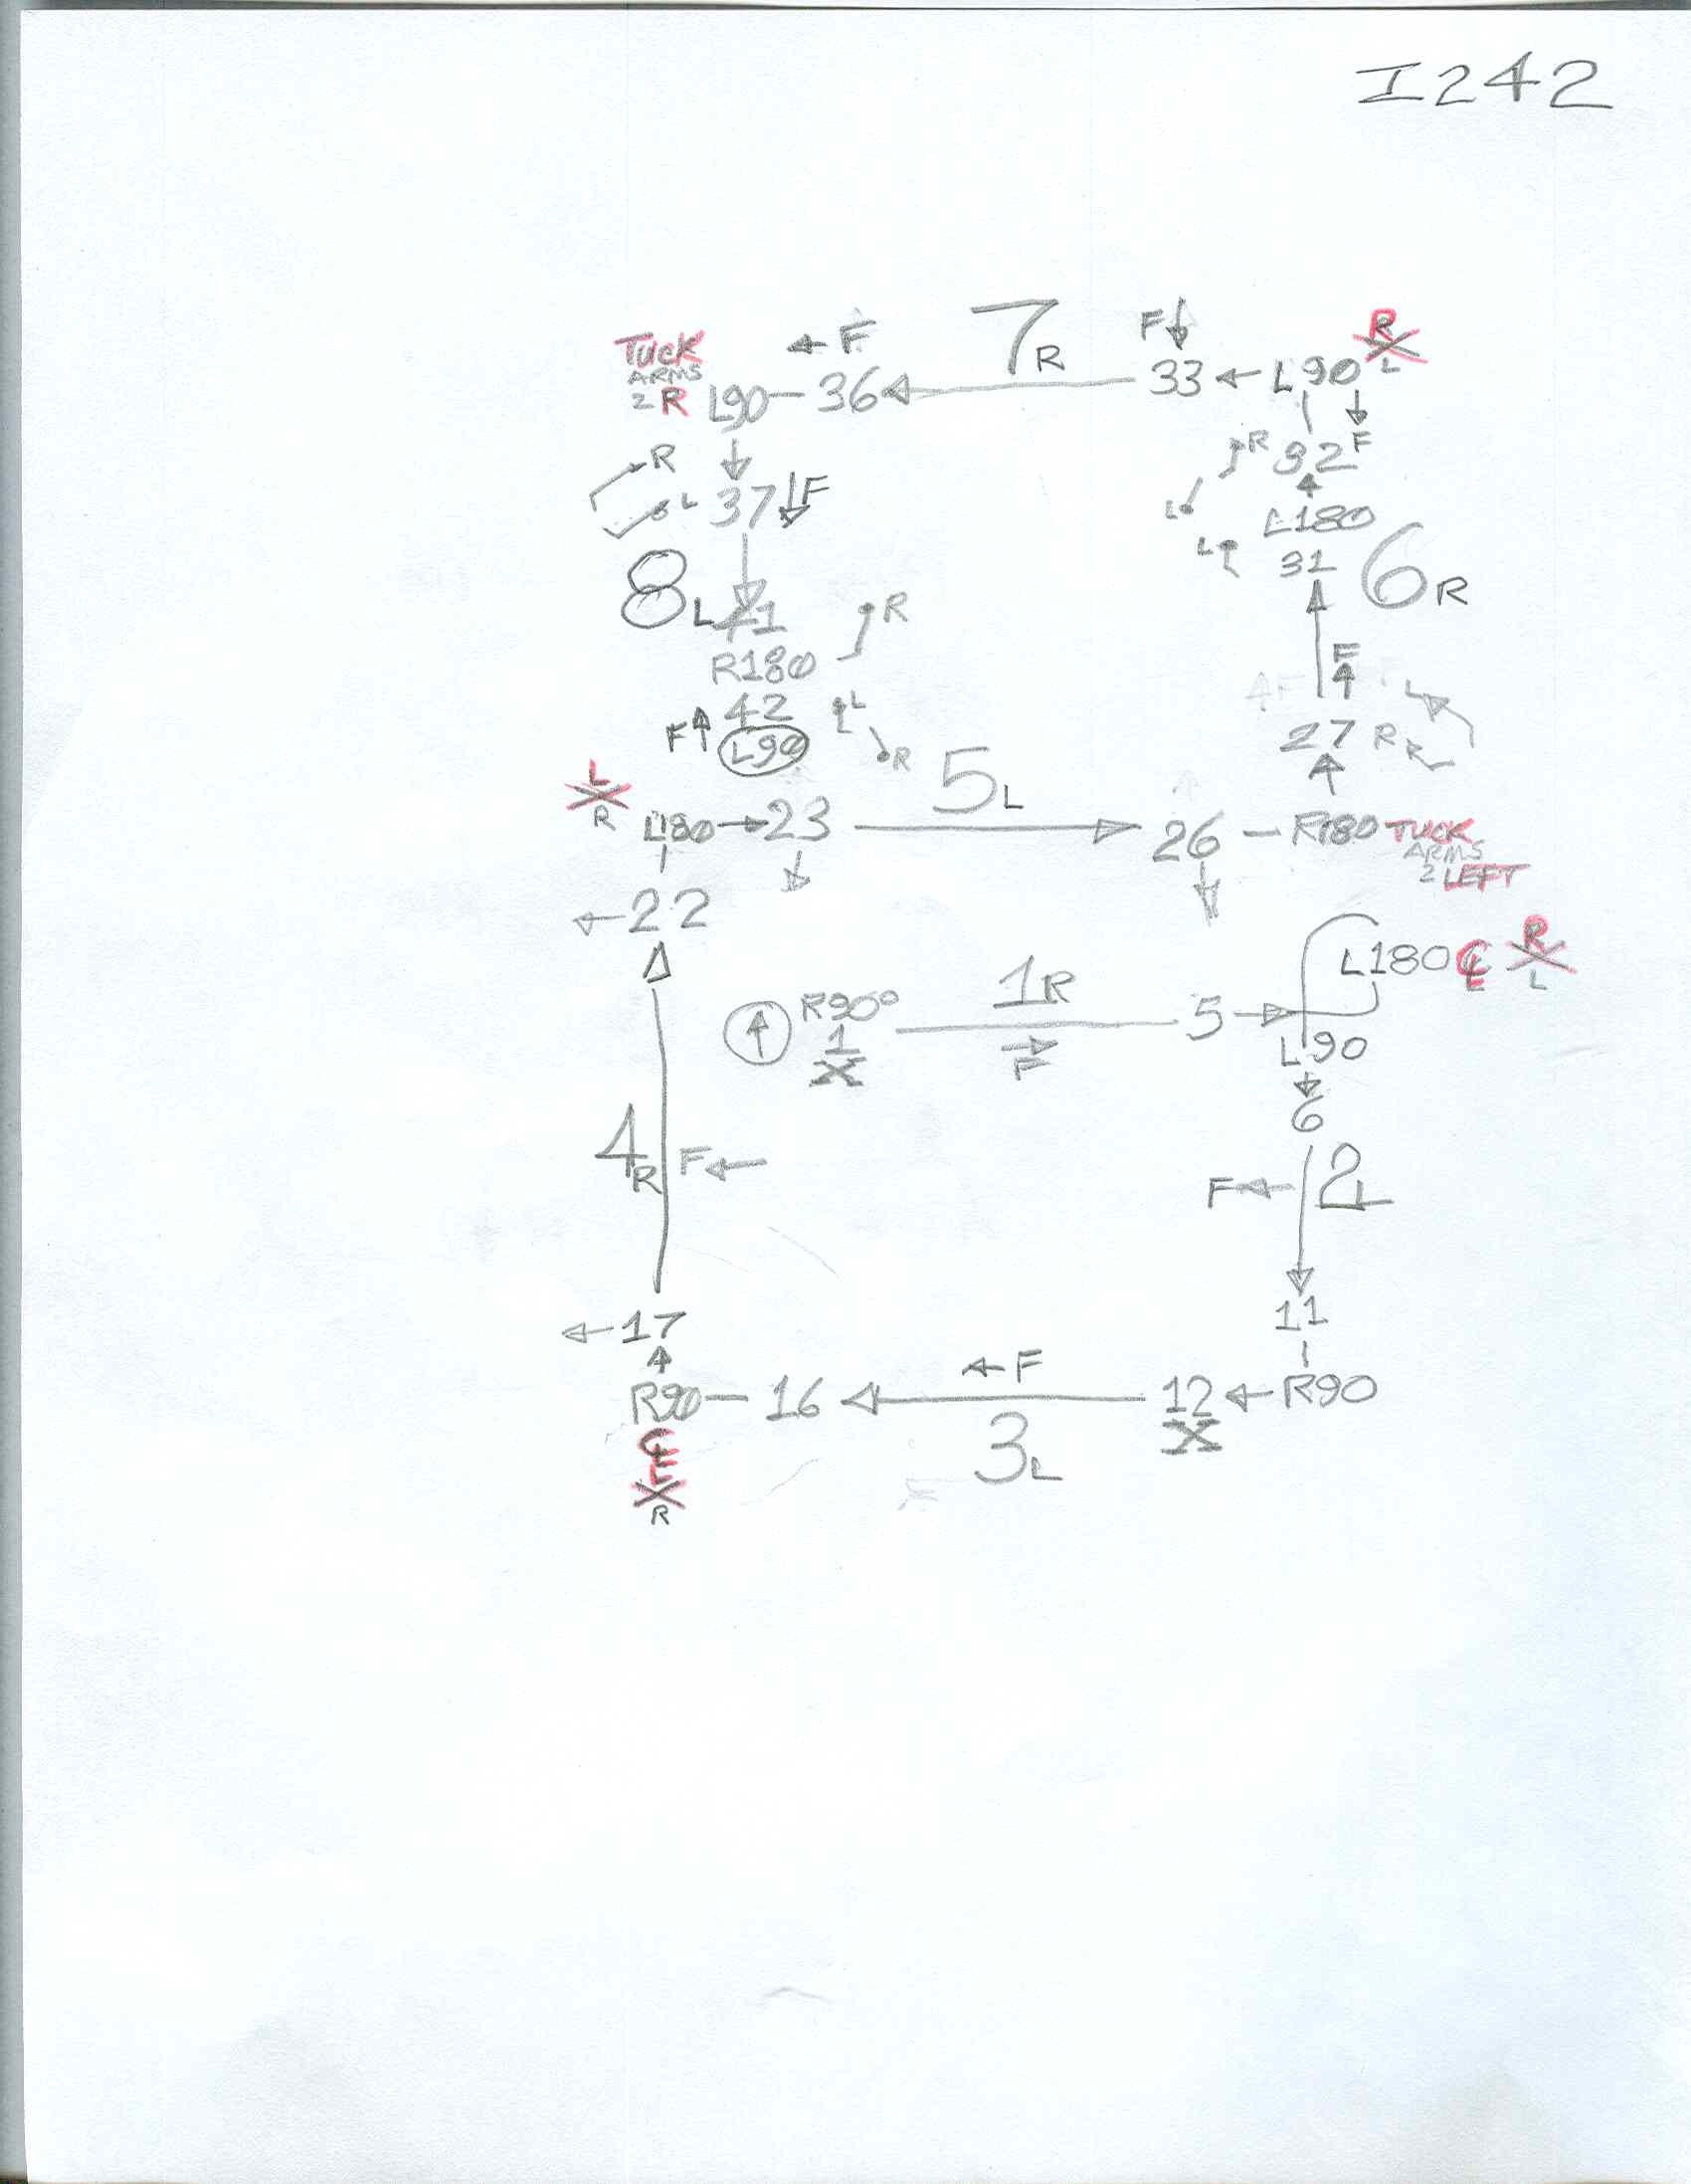 I242
TUCK
ARMS
2 R
L90 36
F
7R
F
33
L90
R
L
R
L
37
F
R
L
32
F
L180
31
L
6R
8L
41
R180
R
42
L
R
F
L90
F
27
R
R
L
L
R
L180
23
5L
26
R180
TUCK
ARMS
2 LEFT
22
R90°
1
X
1R
F
5
L180
R
L
L90
6
4R
F
F
2L
17
11
R90
16
F
3L
12
X
R90
L
X
R